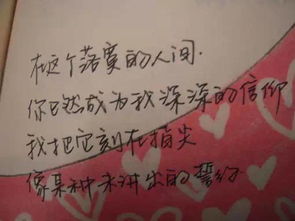 在这个落寞的人间.
你已然成为我深深的信仰
我把它刻在指尖
像某种未讲出的誓约